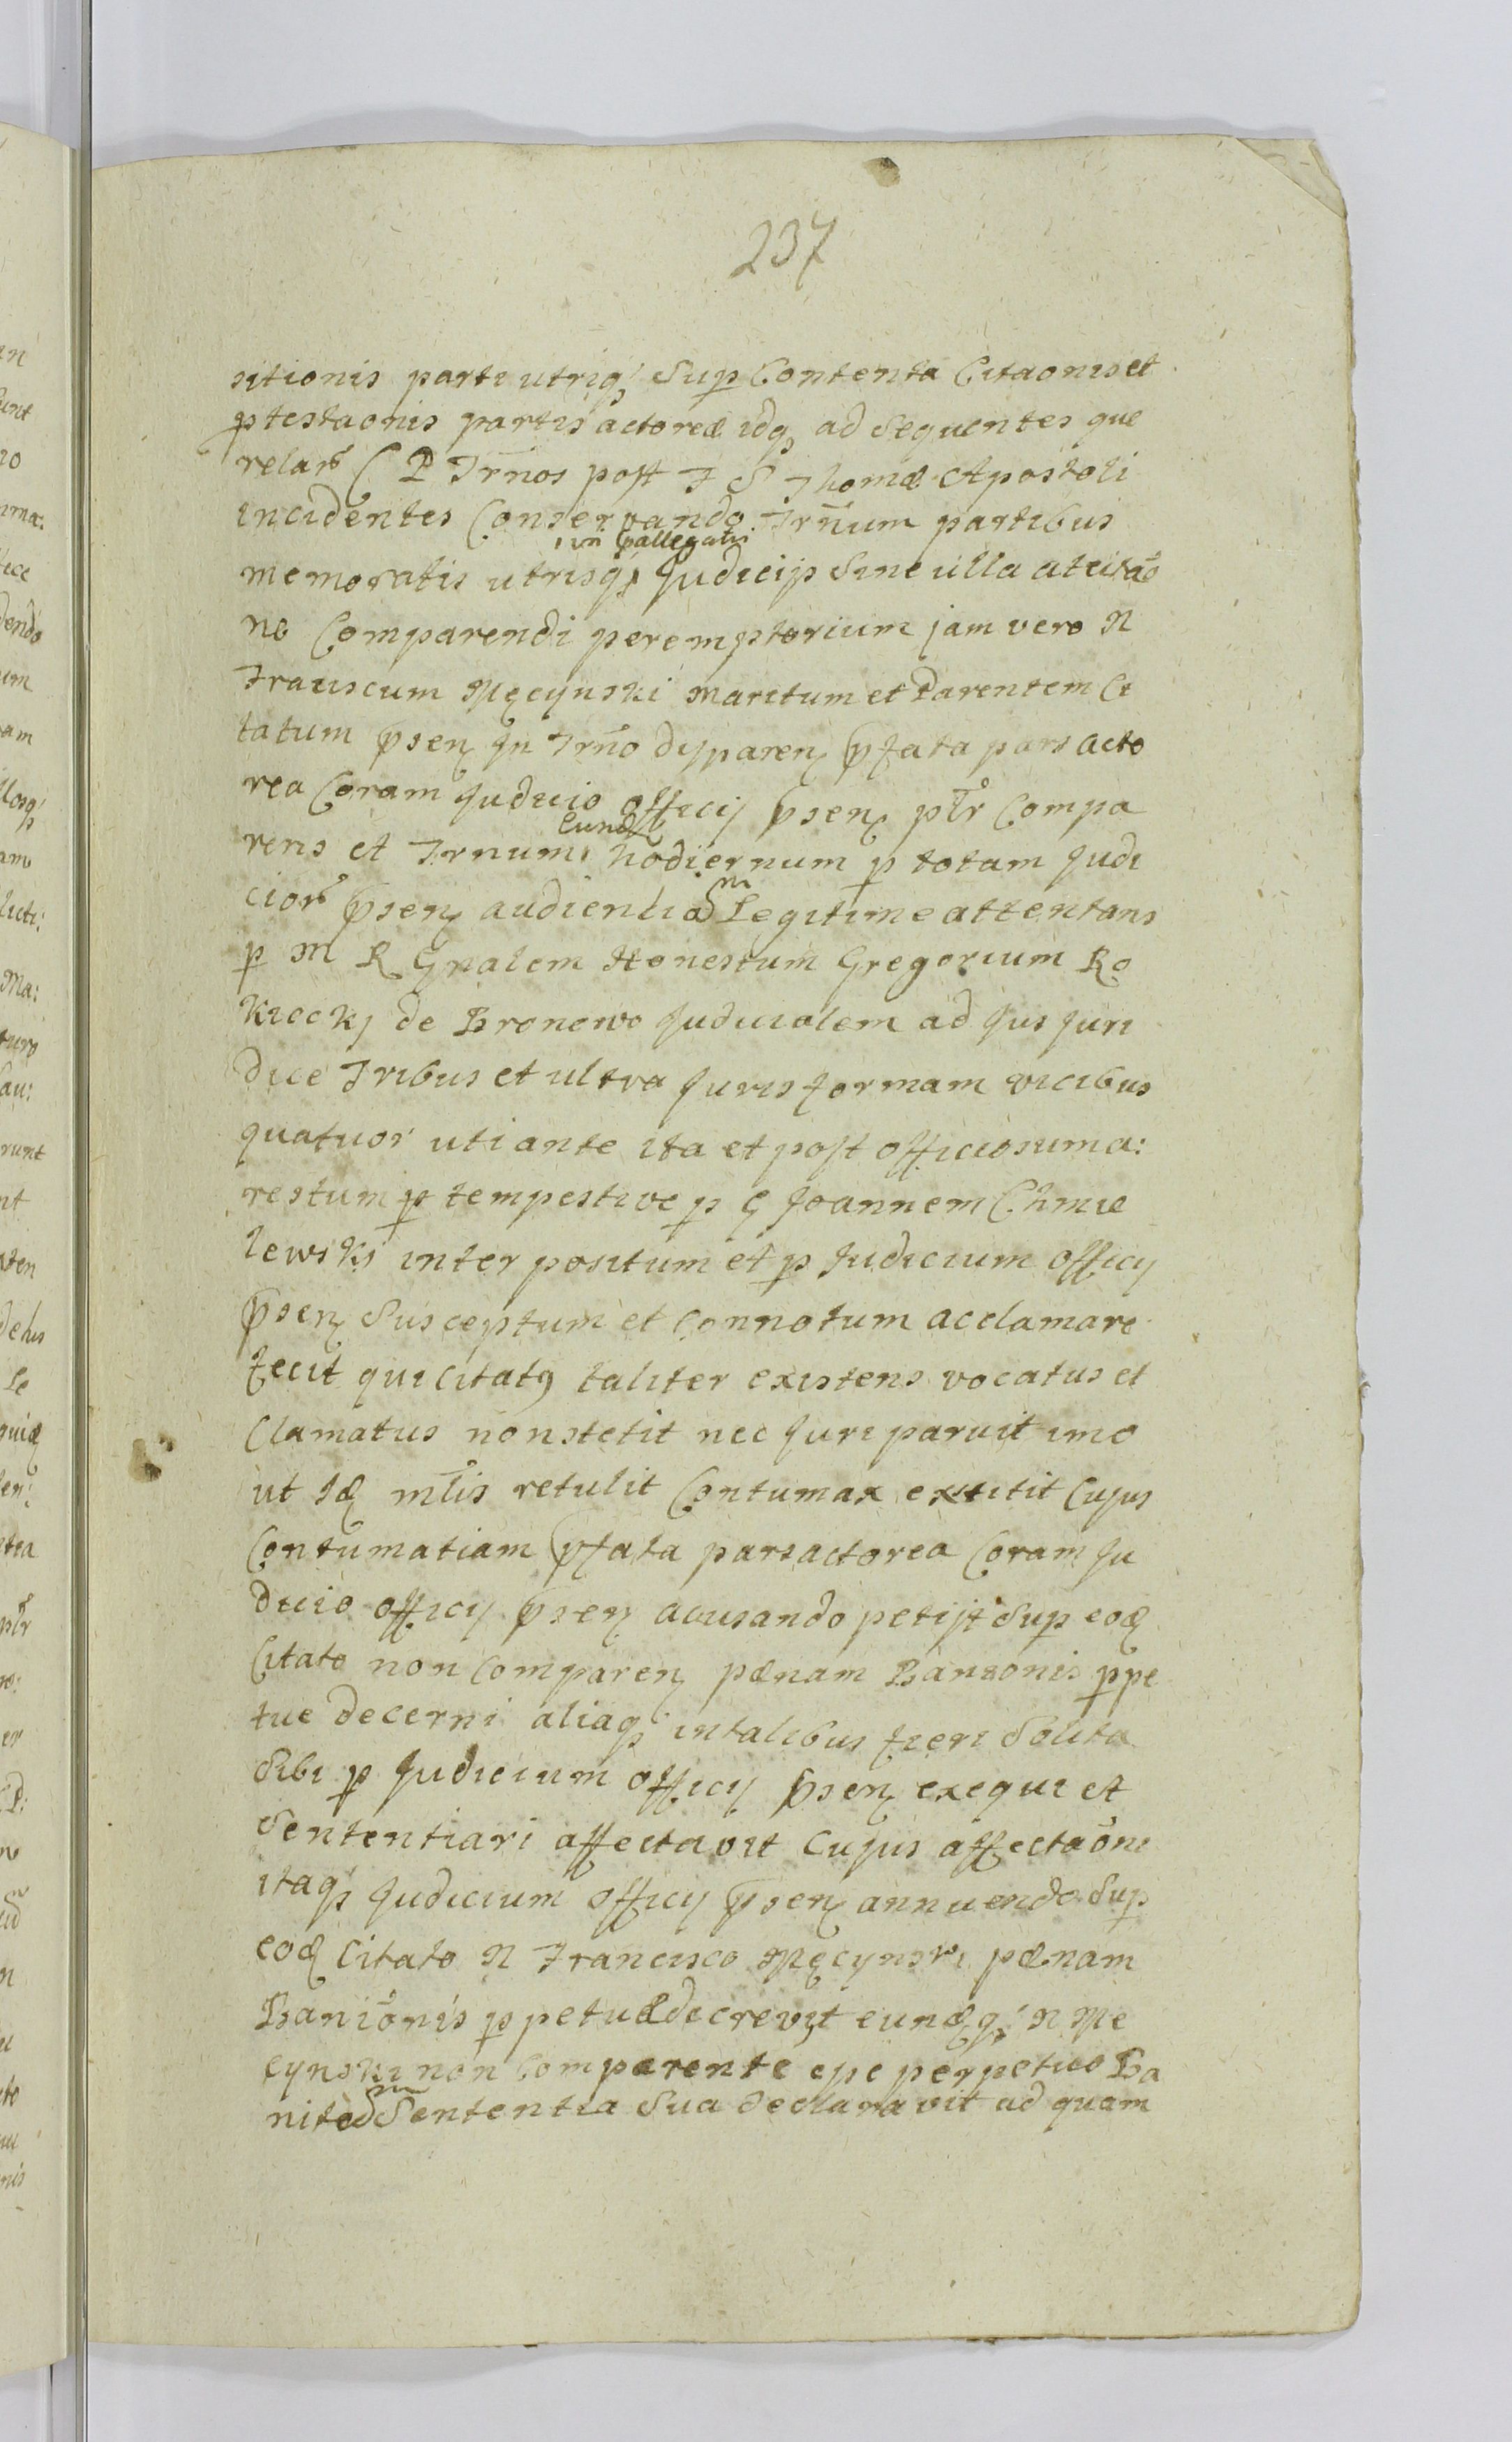 237
sitionis parti utriq; Sup Contenta Citaonis et
ptestaonis partis actoreæ idq; ad Sequentes que
relar C P Trnos post F S Thomæ Apostoli
incidentes Conservando Trnum partibus
in pallegatis
memoratis utrisq; Judicijs Sine ulla
ne Comparendi peremptorium jam vero N
Franscum Męcynski Maritum et Parentem Ci
tatum psen In Trno dyparen pfata pars acto
rea Coram Judicio officij psen ptr Compa
Eund
rens et Trnum hodiernum p totam Judi
cior psen audientiam Legitime attentans
p M R Gnalem Honestum Gregorium Ro
kiccky de Bronowo Judicialem ad Jus Juri
dice Tribus et ultra Juris formam vicibus
quatuor uti ante ita et post officiosum a:
restum p tempestive p G Joannem Chmie
lewski interpositum et p Judicium officij
psen Susceptum et Connotum acclamare
fecit qui citatus taliter existens vocatus et
Clamatus non stetit nec Juri paruit imo
ut Id mtis retulit Contumax extitit Cujus
Contumatiam pfata pars actorea Coram Ju
dicio officij psen acusando petijt Sup eod
Citato non Comparen pænam Banonis ppe
tue decerni aliaq; in talibus fieri Solita
Sibi p Judicium officij psen exequi et
Sententiari affectavit Cujus affectaoni
itaq; Judicium officij psen annuendo Sup
eod Citato N Francisco Męcynski pænam
Banionis ppetuæ decrevit eundq; N Mę
cynski non Comparente epe perpetuo Ba
nitum Sententia Sua declaravit ad quam